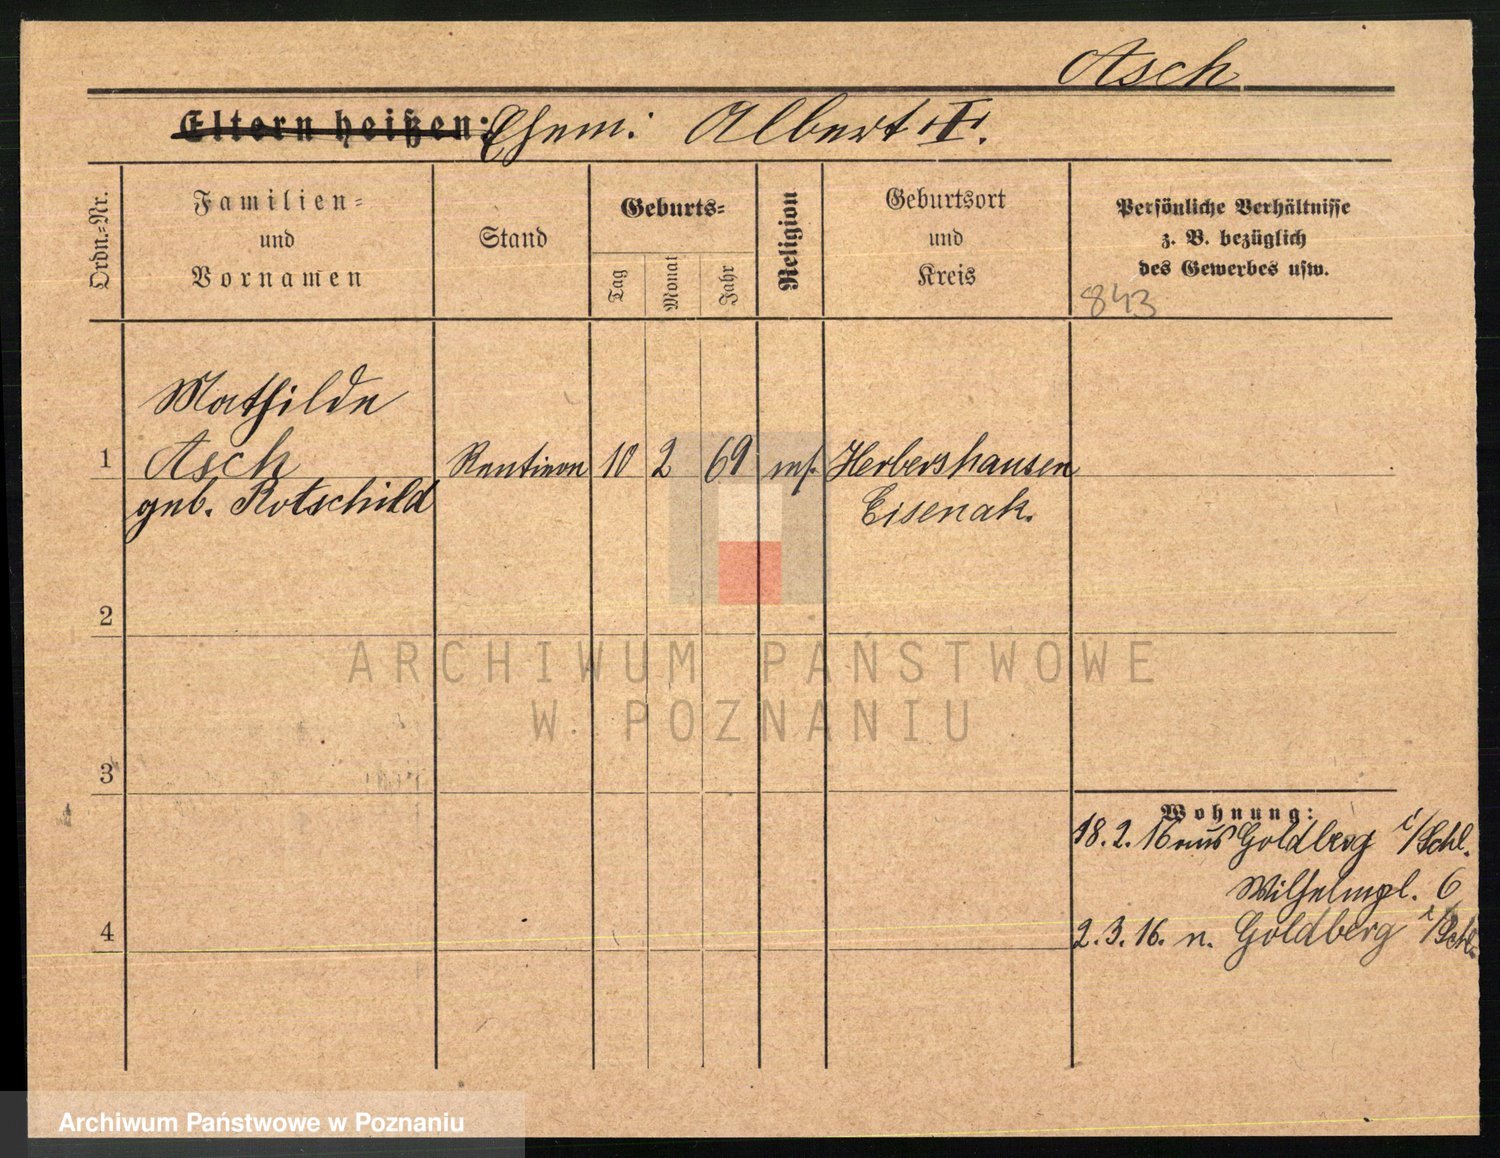 Asch
Eltern heißen: Ehem: Albert II.
Ordn.-Nr.
Familien-
und
Vornamen
Stand
Geburts-
Tag
Monat
Jahr
Religion
Geburtsort
und
Kreis
Persönliche Verhältnisse
z. B. bezüglich
des Gewerbes usw.
843
Mathilde
1 Asch Rentiere 10 2 69 mos. Herbershausen
geb. Rotschild Eisenak.
2
ARCHIWUM PAŃSTWOWE
W POZNANIU
3
Wohnung:
18.2.16 aus Goldberg i/Schl.
Wilhelmpl. 6
4 2.3.16. n. Goldberg i/Schl.
Archiwum Państwowe w Poznaniu